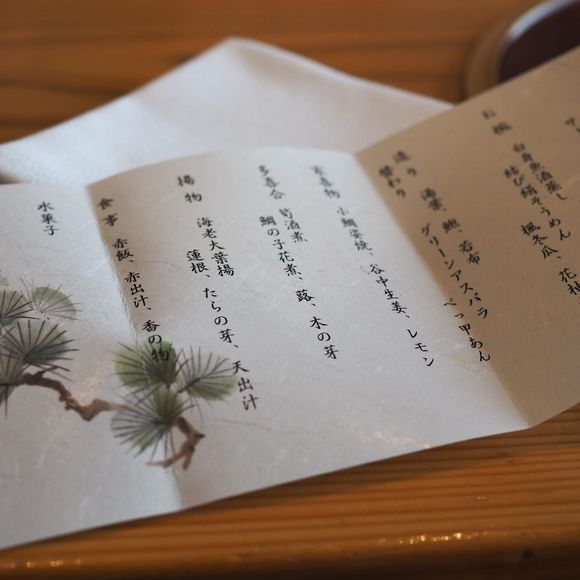 お椀
白身魚酒蒸し
結び絹そうめん
楓冬瓜、花柚
造り
替わり
湯葉、鮑、若布
グリーンアスパラ
べっ甲あん
家喜物
小鯛姿焼、谷中生姜、レモン
多喜合
筍酒煮、
鯛の子花煮、蕗、木の芽
揚物
海老大葉揚
蓮根、たらの芽、天出汁
食事
赤飯、赤出汁、香の物
水菓子